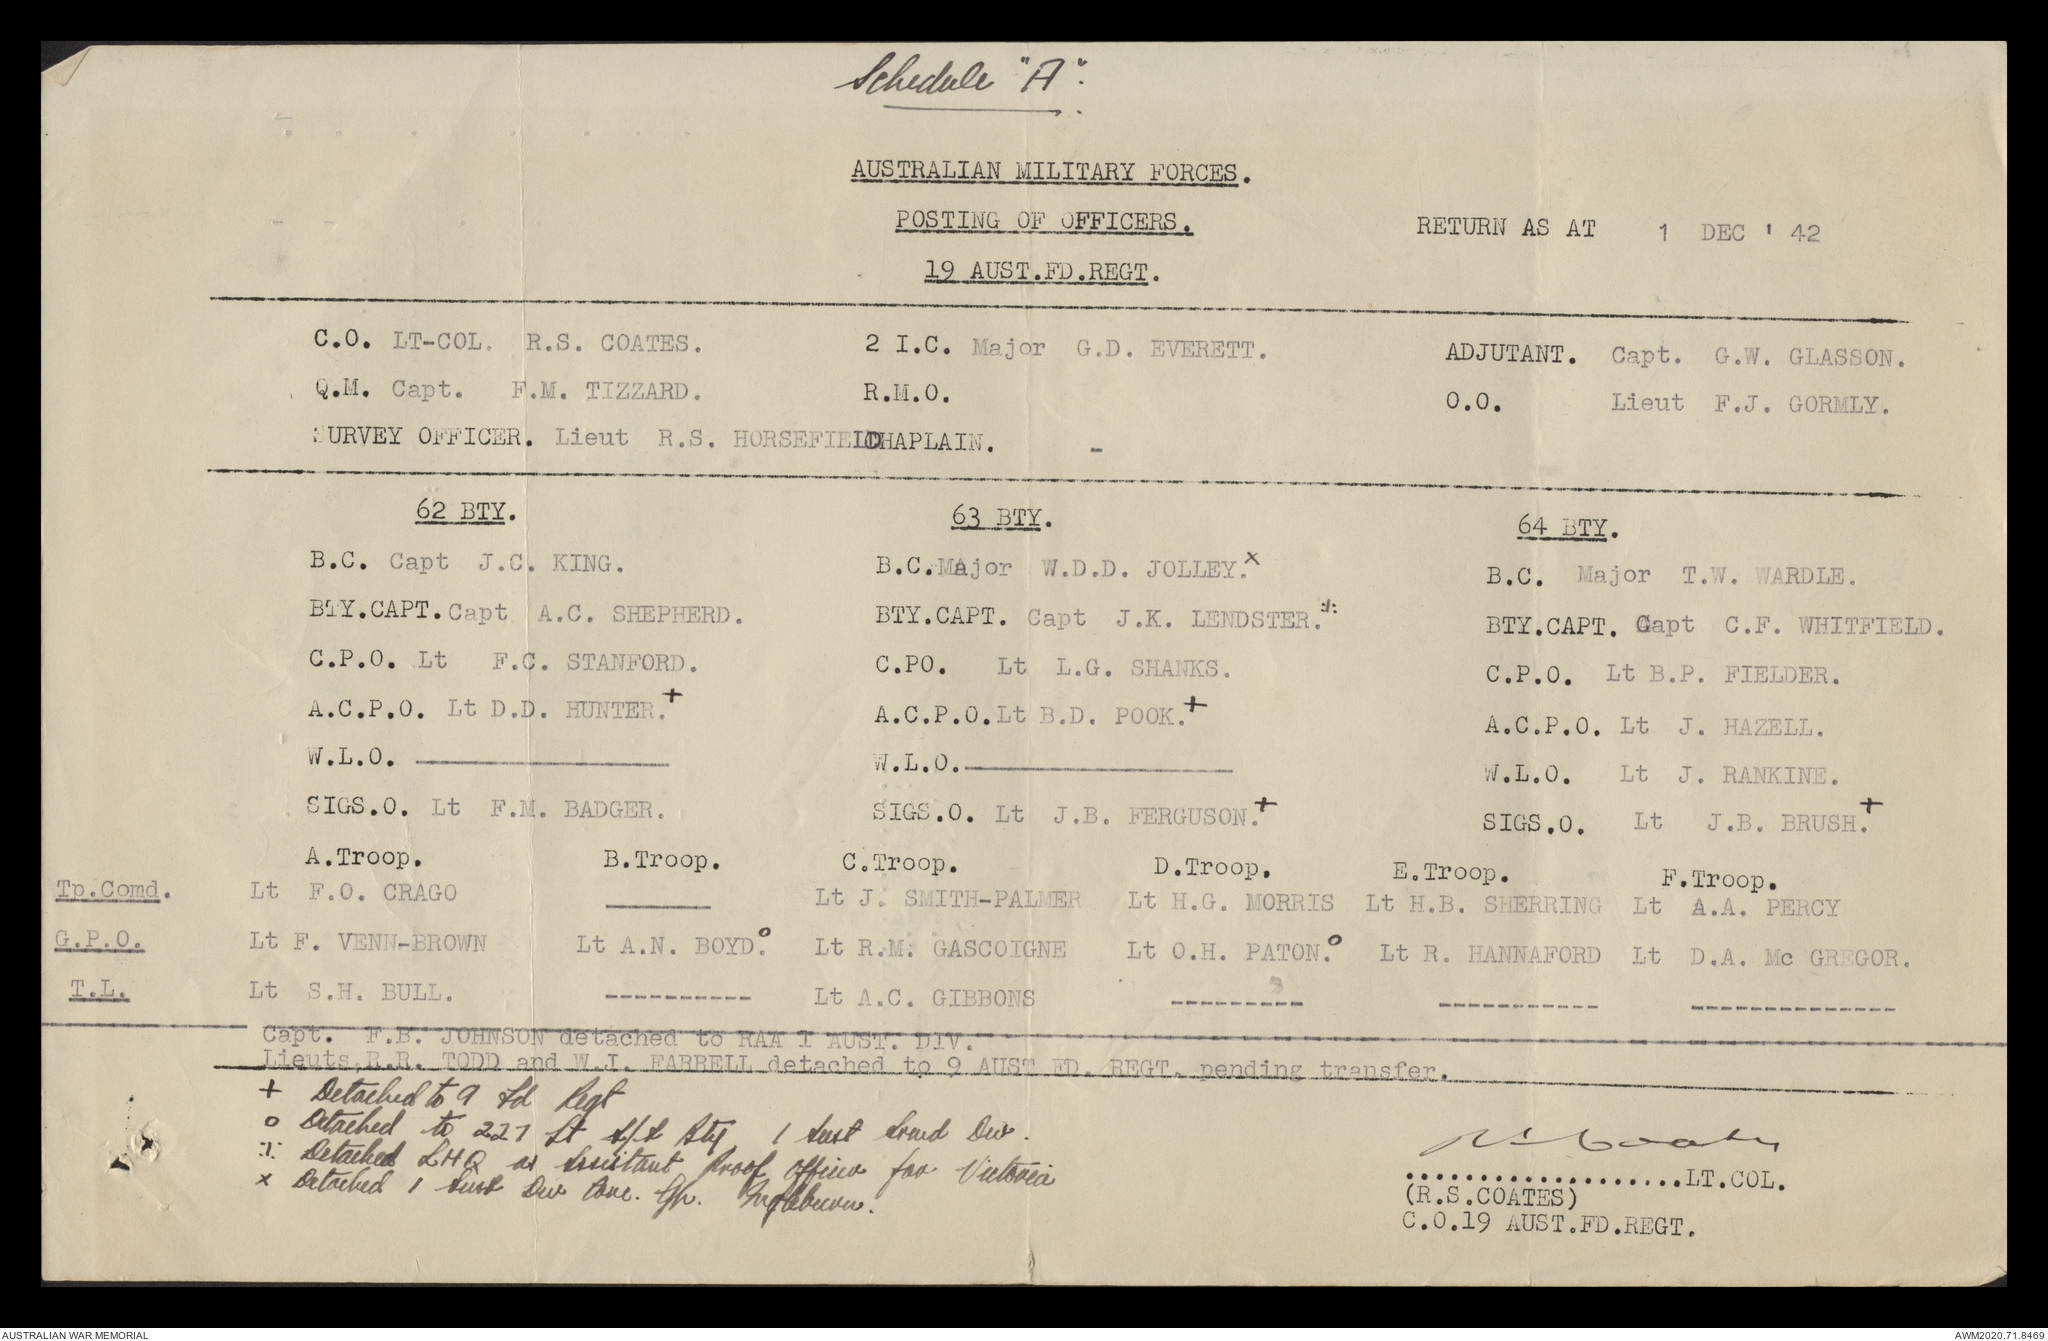 Schedule "A".
AUSTRALIAN MILITARY FORCES.
POSTING OF OFFICERS. RETURN AS AT 1 DEC ' 42
19 AUST.FD.REGT.
C.O. LT-COL. R.S. COATES. 2 I.C. Major G.D. EVERETT. ADJUTANT. Capt. G.W. GLASSON.
Q.M. Capt. F.M. TIZZARD. R.M.O. O.O. Lieut F.J. GORMLY.
SURVEY OFFICER. Lieut R.S. HORSEFIELD CHAPLAIN. -
62 BTY. 63 BTY. 64 BTY.
B.C. Capt J.C. KING. B.C. Major W.D.D. JOLLEY. x B.C. Major T.W. WARDLE.
BTY.CAPT. Capt A.C. SHEPHERD. BTY.CAPT. Capt J.K. LENDSTER. :1: BTY.CAPT. Capt C.F. WHITFIELD.
C.P.O. Lt F.C. STANFORD. C.PO. Lt L.G. SHANKS. C.P.O. Lt B.P. FIELDER.
A.C.P.O. Lt D.D. HUNTER. + A.C.P.O. Lt B.D. POOK. + A.C.P.O. Lt J. HAZELL.
W.L.O. W.L.O. W.L.O. Lt J. RANKINE.
SIGS.O. Lt F.M. BADGER. SIGS.O. Lt J.B. FERGUSON. + SIGS.O. Lt J.B. BRUSH. +
A.Troop. B.Troop. C.Troop. D.Troop. E.Troop. F.Troop.
Tp.Comd. Lt F.O. CRAGO Lt J. SMITH-PALMER Lt H.G. MORRIS Lt H.B. SHERRING Lt A.A. PERCY
G.P.O. Lt F. VENN-BROWN Lt A.N. BOYD. o Lt R.M. GASCOIGNE Lt O.H. PATON. o Lt R. HANNAFORD Lt D.A. Mc GREGOR.
T.L. Lt S.H. BULL. ---------- Lt A.C. GIBBONS --------- ----------- --------------
Capt. F.B. JOHNSON detached to RAA 1 AUST. DIV.
Lieuts. R.R. TODD and W.J. FARRELL detached to 9 AUST FD. REGT. pending transfer.
+ Detached to 9 Fd Regt
o Detached to 227 Lt A/A Bty 1 Aust Armd Div.
:1: Detached LHQ as Assistant Proof Officer for Victoria
x Detached 1 Aust Div
LT.COL.
(R.S.COATES)
C.O.19 AUST.FD.REGT.
AUSTRALIAN WAR MEMORIAL AWM2020.71.8469